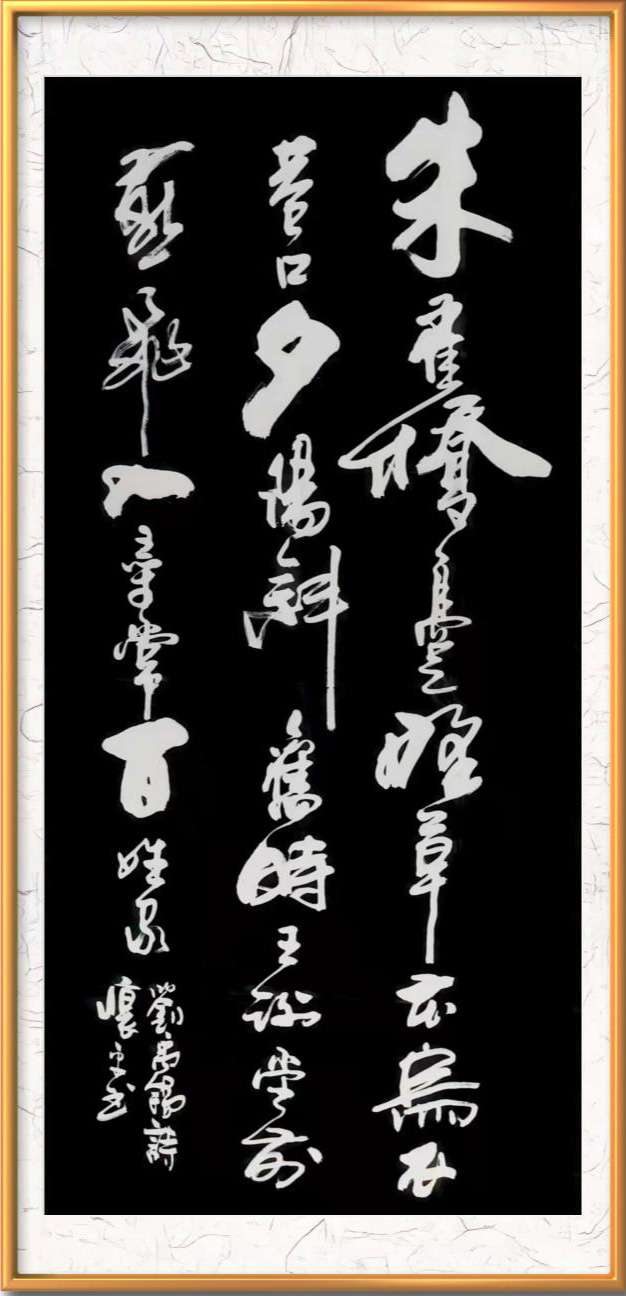 朱雀橋邊野草花烏衣
巷口夕陽斜舊時王謝堂前
燕飛入尋常百姓家
劉禹錫詩
懷書